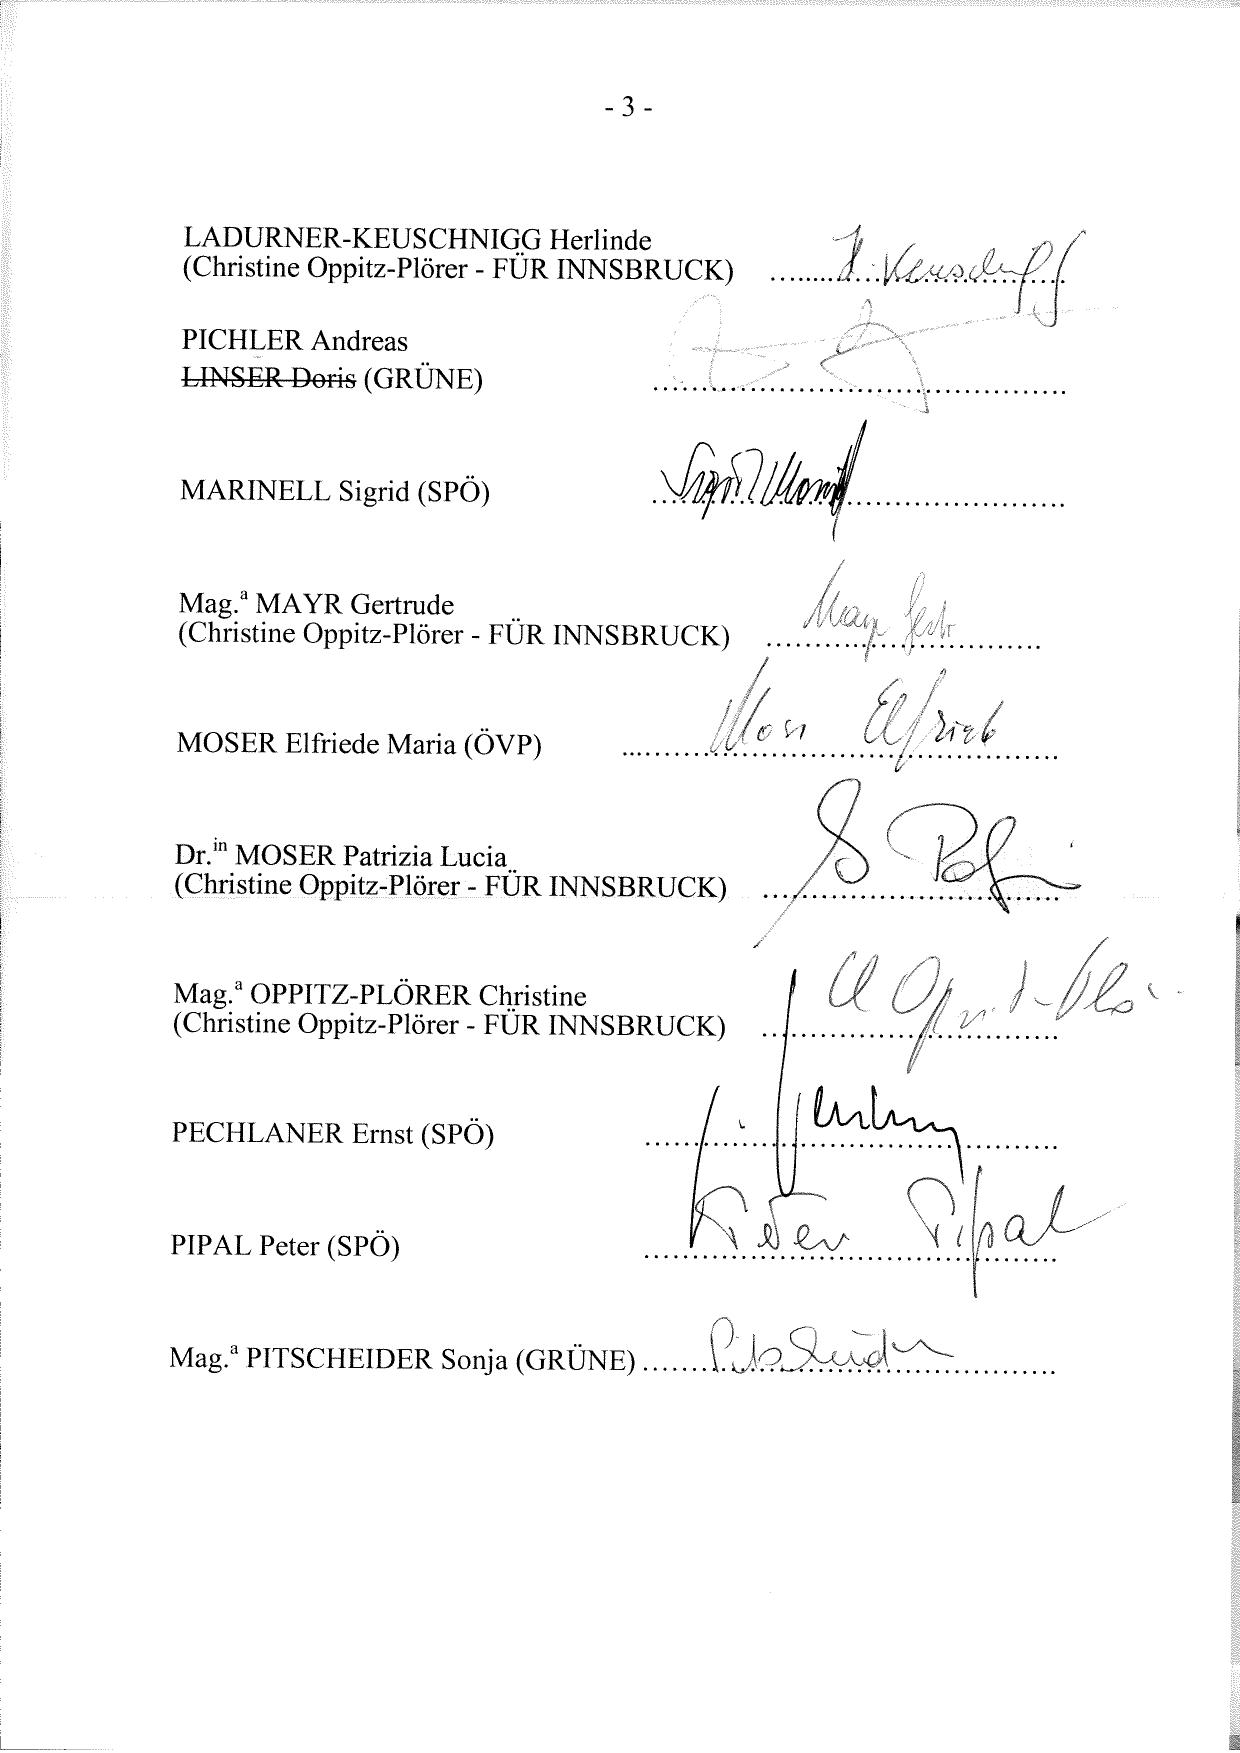 - 3 -
LADURNER-KEUSCHNIGG Herlinde
(Christine Oppitz-Plörer - FÜR INNSBRUCK) ........H. Keuschnigg
PICHLER Andreas
LINSER Doris (GRÜNE) ........
MARINELL Sigrid (SPÖ) ........Sigrid Marinell
Mag.ª MAYR Gertrude
(Christine Oppitz-Plörer - FÜR INNSBRUCK) ........Mayr Gertr
MOSER Elfriede Maria (ÖVP) ........Moser Elfriede
Dr.in MOSER Patrizia Lucia
(Christine Oppitz-Plörer - FÜR INNSBRUCK) ........
Mag.ª OPPITZ-PLÖRER Christine
(Christine Oppitz-Plörer - FÜR INNSBRUCK) ........
PECHLANER Ernst (SPÖ) ........
PIPAL Peter (SPÖ) ........Peter Pipal
Mag.ª PITSCHEIDER Sonja (GRÜNE) ........Pitscheider